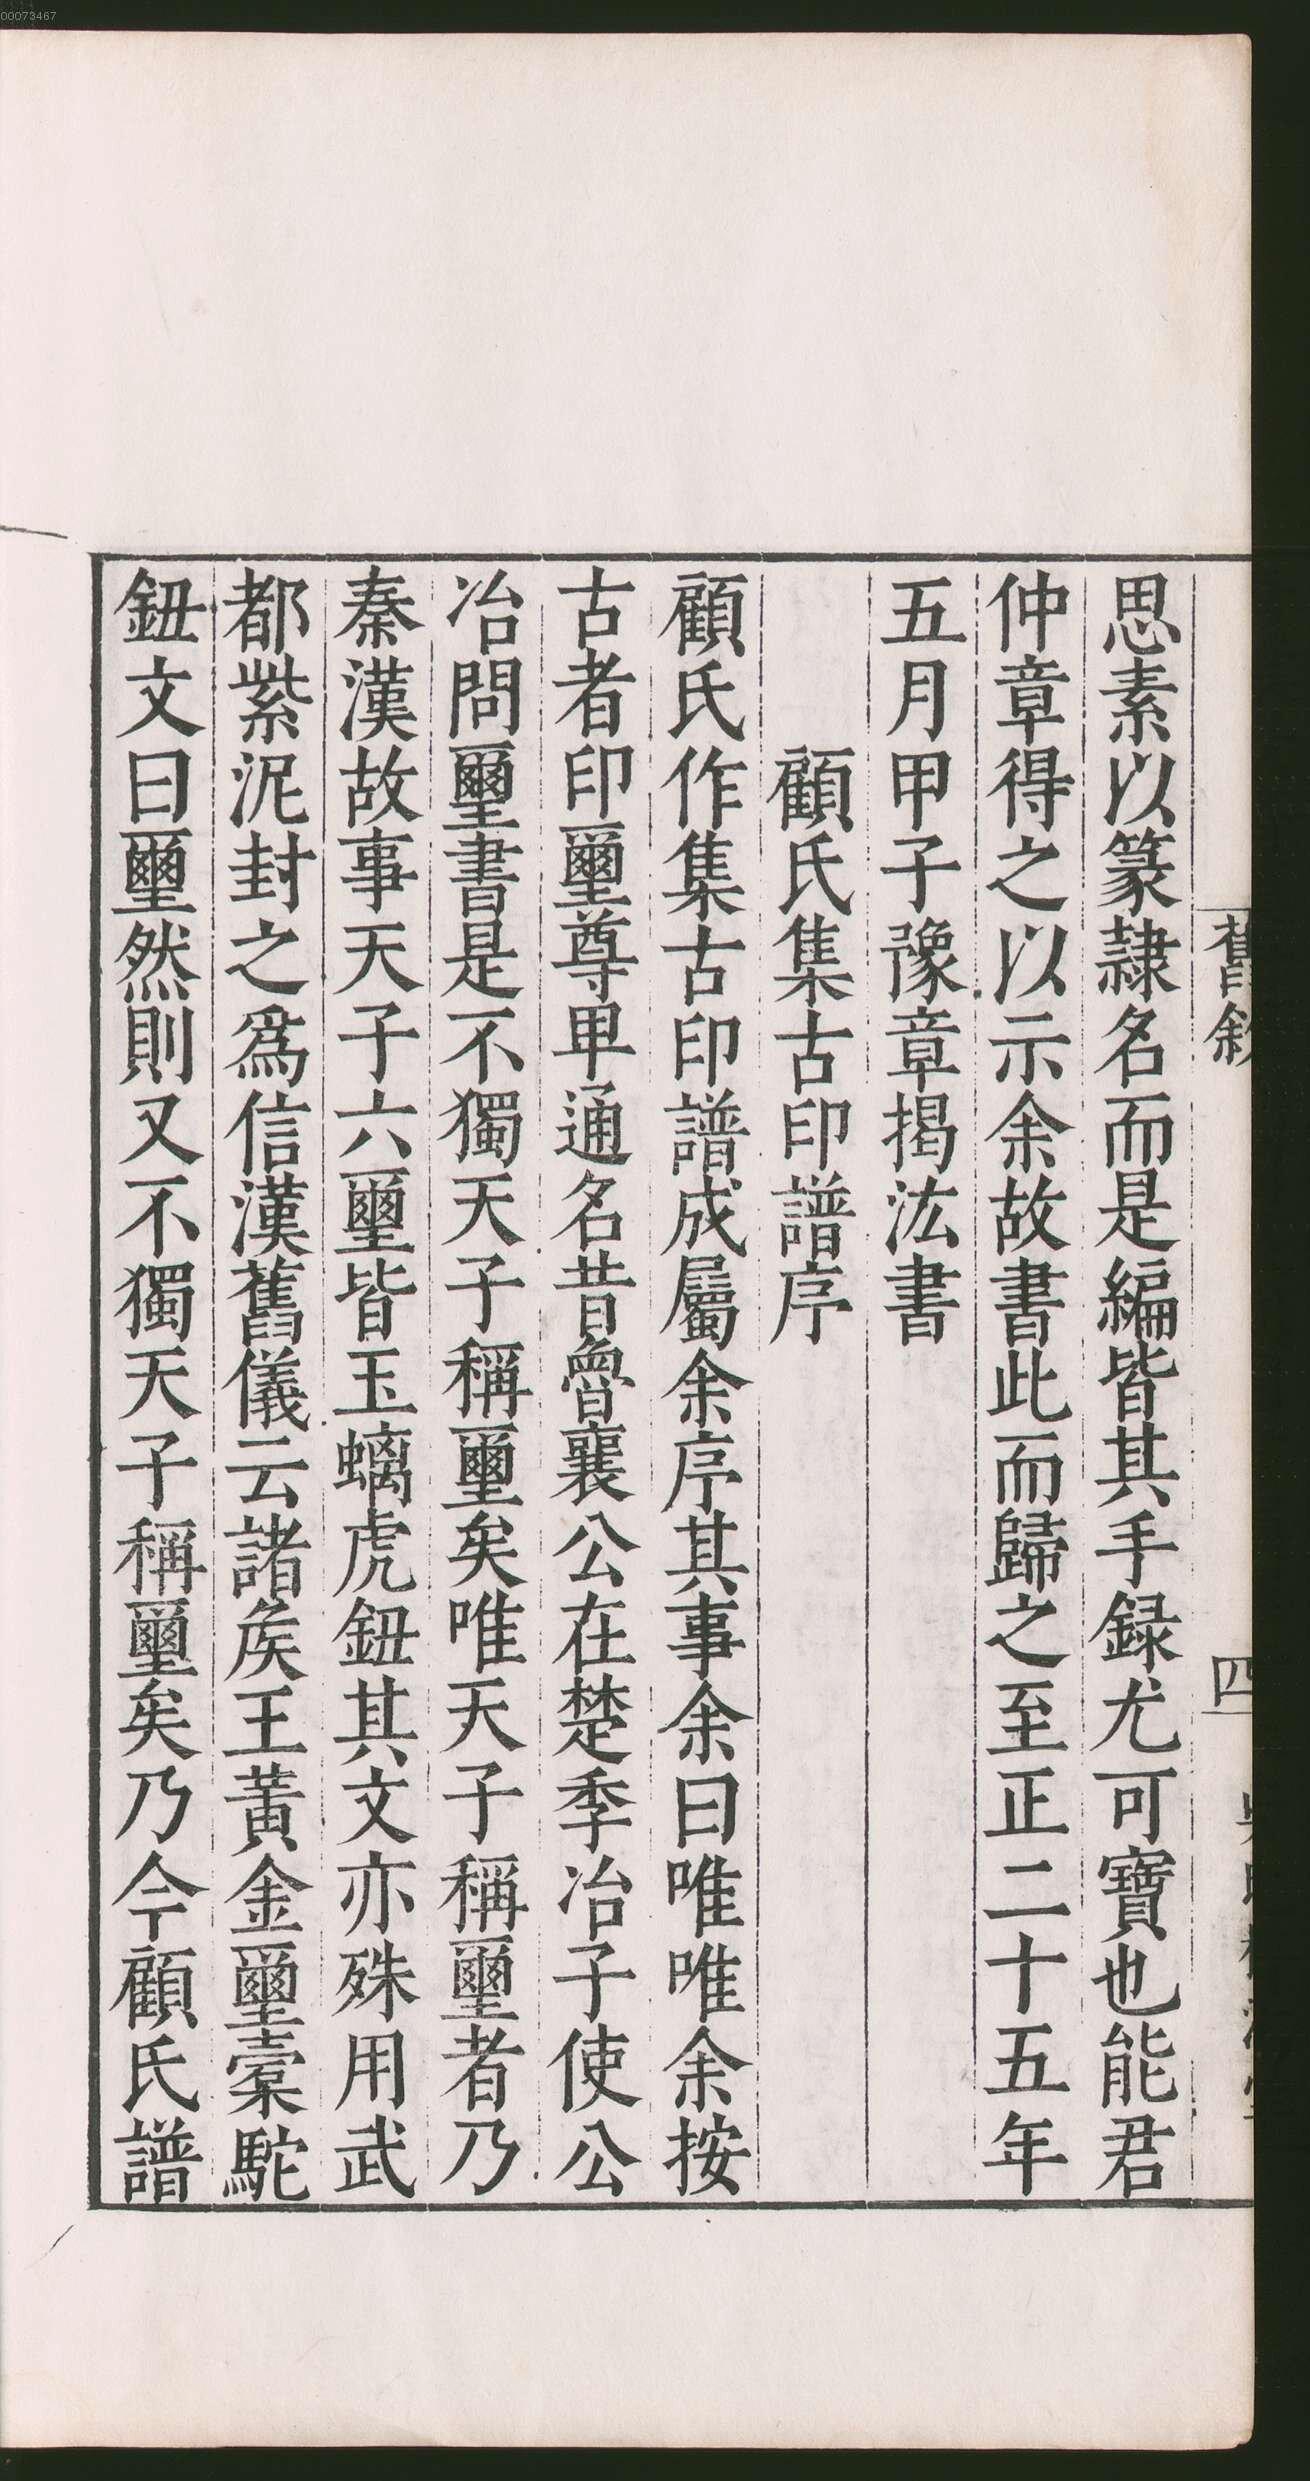 00073467
舊敘
四
思素以篆隷名而是編皆其手録尤可寶也能君
仲章得之以示余故書此而歸之至正二十五年
五月甲子豫章揭汯書
顧氏集古印譜序
顧氏作集古印譜成屬余序其事余曰唯唯余按
古者印璽尊卑通名昔魯襄公在楚季冶子使公
冶問璽書是不獨天子稱璽矣唯天子稱璽者乃
秦漢故事天子六璽皆玉螭虎鈕其文亦殊用武
都紫泥封之爲信漢舊儀云諸矦王黃金璽槖駝
鈕文曰璽然則又不獨天子稱璽矣乃今顧氏譜